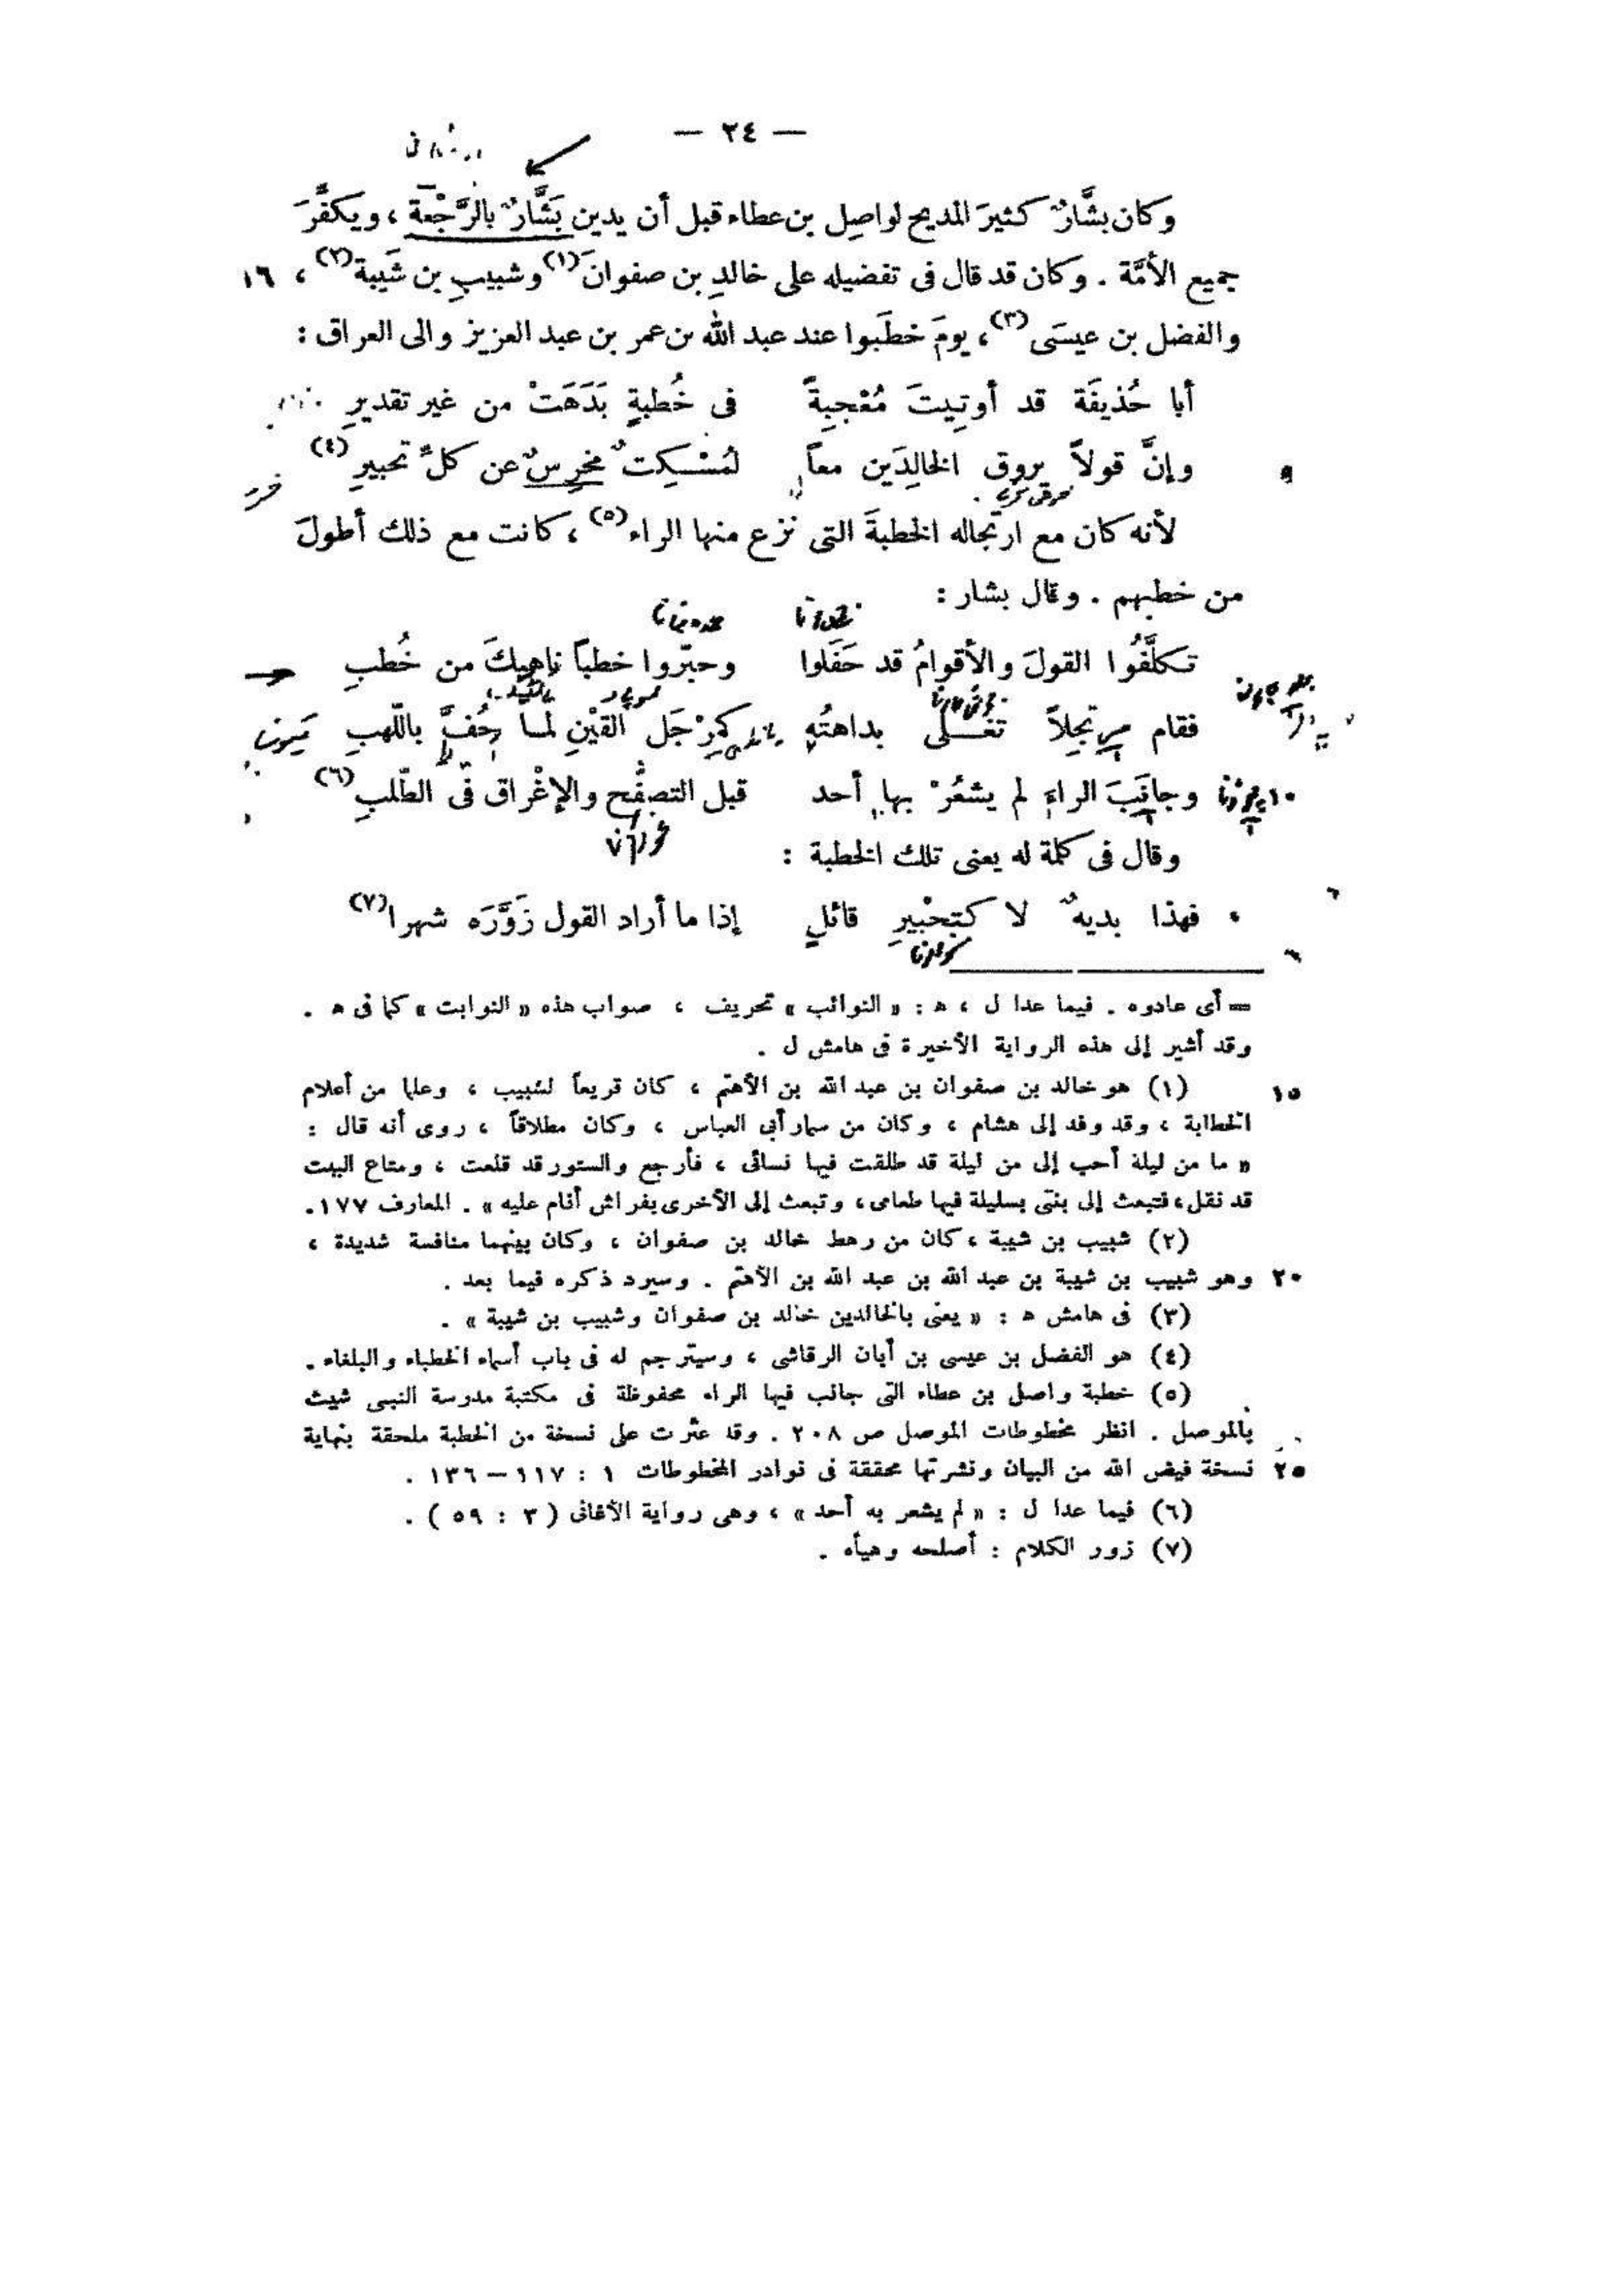 — ٢٤ —
وكان بشَّارٌ كثيرَ المديح لواصِلِ بن عطاء قبل أن يدين بَشَّارٌ بالرَّجْعة ، ويكفِّرَ
جميع الأمَّة . وكان قد قال فى تفضيله على خالدِ بن صفوانَ (١) وشبيبِ بن شَيبة (٢) ، ١٦
والفضل بن عيسَى (٣) ، يومَ خطَبوا عند عبد الله بن عمر بن عبد العزيز والى العراق :
أبا حُذيفَة قد أوتِيتَ مُعْجِبةً فى خُطبةٍ بَدَهَتْ من غير تقديرِ
وإنَّ قولاً يروق الخالِدَين معاً لمُسْكِتٌ مخرِسٌ عن كلِّ تحبيرِ (٤)
لأنه كان مع ارتجاله الخطبةَ التى نزع منها الراء (٥) ، كانت مع ذلك أطولَ
من خطبهم . وقال بشار :
تكلَّفُوا القولَ والأقوامُ قد حَفَلوا وحبّروا خطباً ناهِيكَ من خُطبِ
فقام مرتجِلاً تغلى بداهتُه كمِرْجَل القَيْنِ لمـا حُفَّ باللّهبِ
١٠ وجانَبَ الراءَ لم يشعُرْ بها أحد قبل التصفُّح والإغْراق فى الطّلبِ (٦)
وقال فى كلمة له يعنى تلك الخطبة :
فهذا بديهٌ لا كتحْبيرِ قائلٍ إذا ما أراد القول زَوَّرَه شهرا (٧)
= أى عادوه . فيما عدا ل ، ه : « النوائب » تحريف ، صواب هذه « النوابت » كما فى ه .
وقد أشير إلى هذه الرواية الأخيرة فى هامش ل .
١٥ (١) هو خالد بن صفوان بن عبد الله بن الأهتم ، كان قريعاً لشبيب ، وعلما من أعلام
الخطابة ، وقد وفد إلى هشام ، وكان من سمار أبى العباس ، وكان مطلاقاً ، روى أنه قال :
« ما من ليلة أحب إلى من ليلة قد طلقت فيها نسائى ، فأرجع والستور قد قلعت ، ومتاع البيت
قد نقل ، فتبعث إلى بنتى بسليلة فيها طعامى ، وتبعث إلى الأخرى بفراش أنام عليه » . المعارف ١٧٧ .
(٢) شبيب بن شيبة ، كان من رهط خالد بن صفوان ، وكان بينهما منافسة شديدة ،
٢٠ وهو شبيب بن شيبة بن عبد الله بن عبد الله بن الأهتم . وسيرد ذكره فيما بعد .
(٣) فى هامش ه : « يعنى بالخالدين خالد بن صفوان وشبيب بن شيبة » .
(٤) هو الفضل بن عيسى بن أبان الرقاشى ، وسيترجم له فى باب أسماء الخطباء والبلغاء .
(٥) خطبة واصل بن عطاء التى جانب فيها الراء محفوظة فى مكتبة مدرسة النبى شيث
بالموصل . انظر مخطوطات الموصل ص ٢٠٨ . وقد عثرت على نسخة من الخطبة ملحقة بنهاية
٢٥ نسخة فيض الله من البيان ونشرتها محققة فى نوادر المخطوطات ١ : ١١٧ — ١٣٦ .
(٦) فيما عدا ل : « لم يشعر به أحد » ، وهى رواية الأغانى ( ٣ : ٥٩ ) .
(٧) زور الكلام : أصلحه وهيأه .